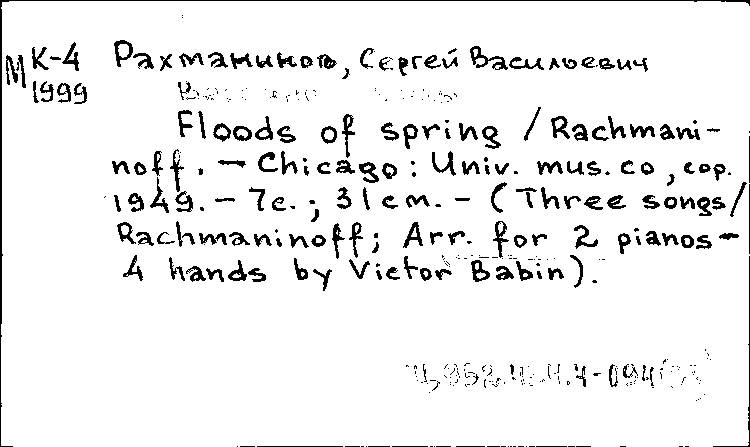 М К-4 Рахманинов, Сергей Васильевич
1999
Floods of spring / Rachmani-
noff. — Chicago: Univ. mus. co, cop.
1949. — 7с.; 31 cm. — (Three songs/
Rachmaninoff; Arr. for 2 pianos —
4 hands by Victor Babin).